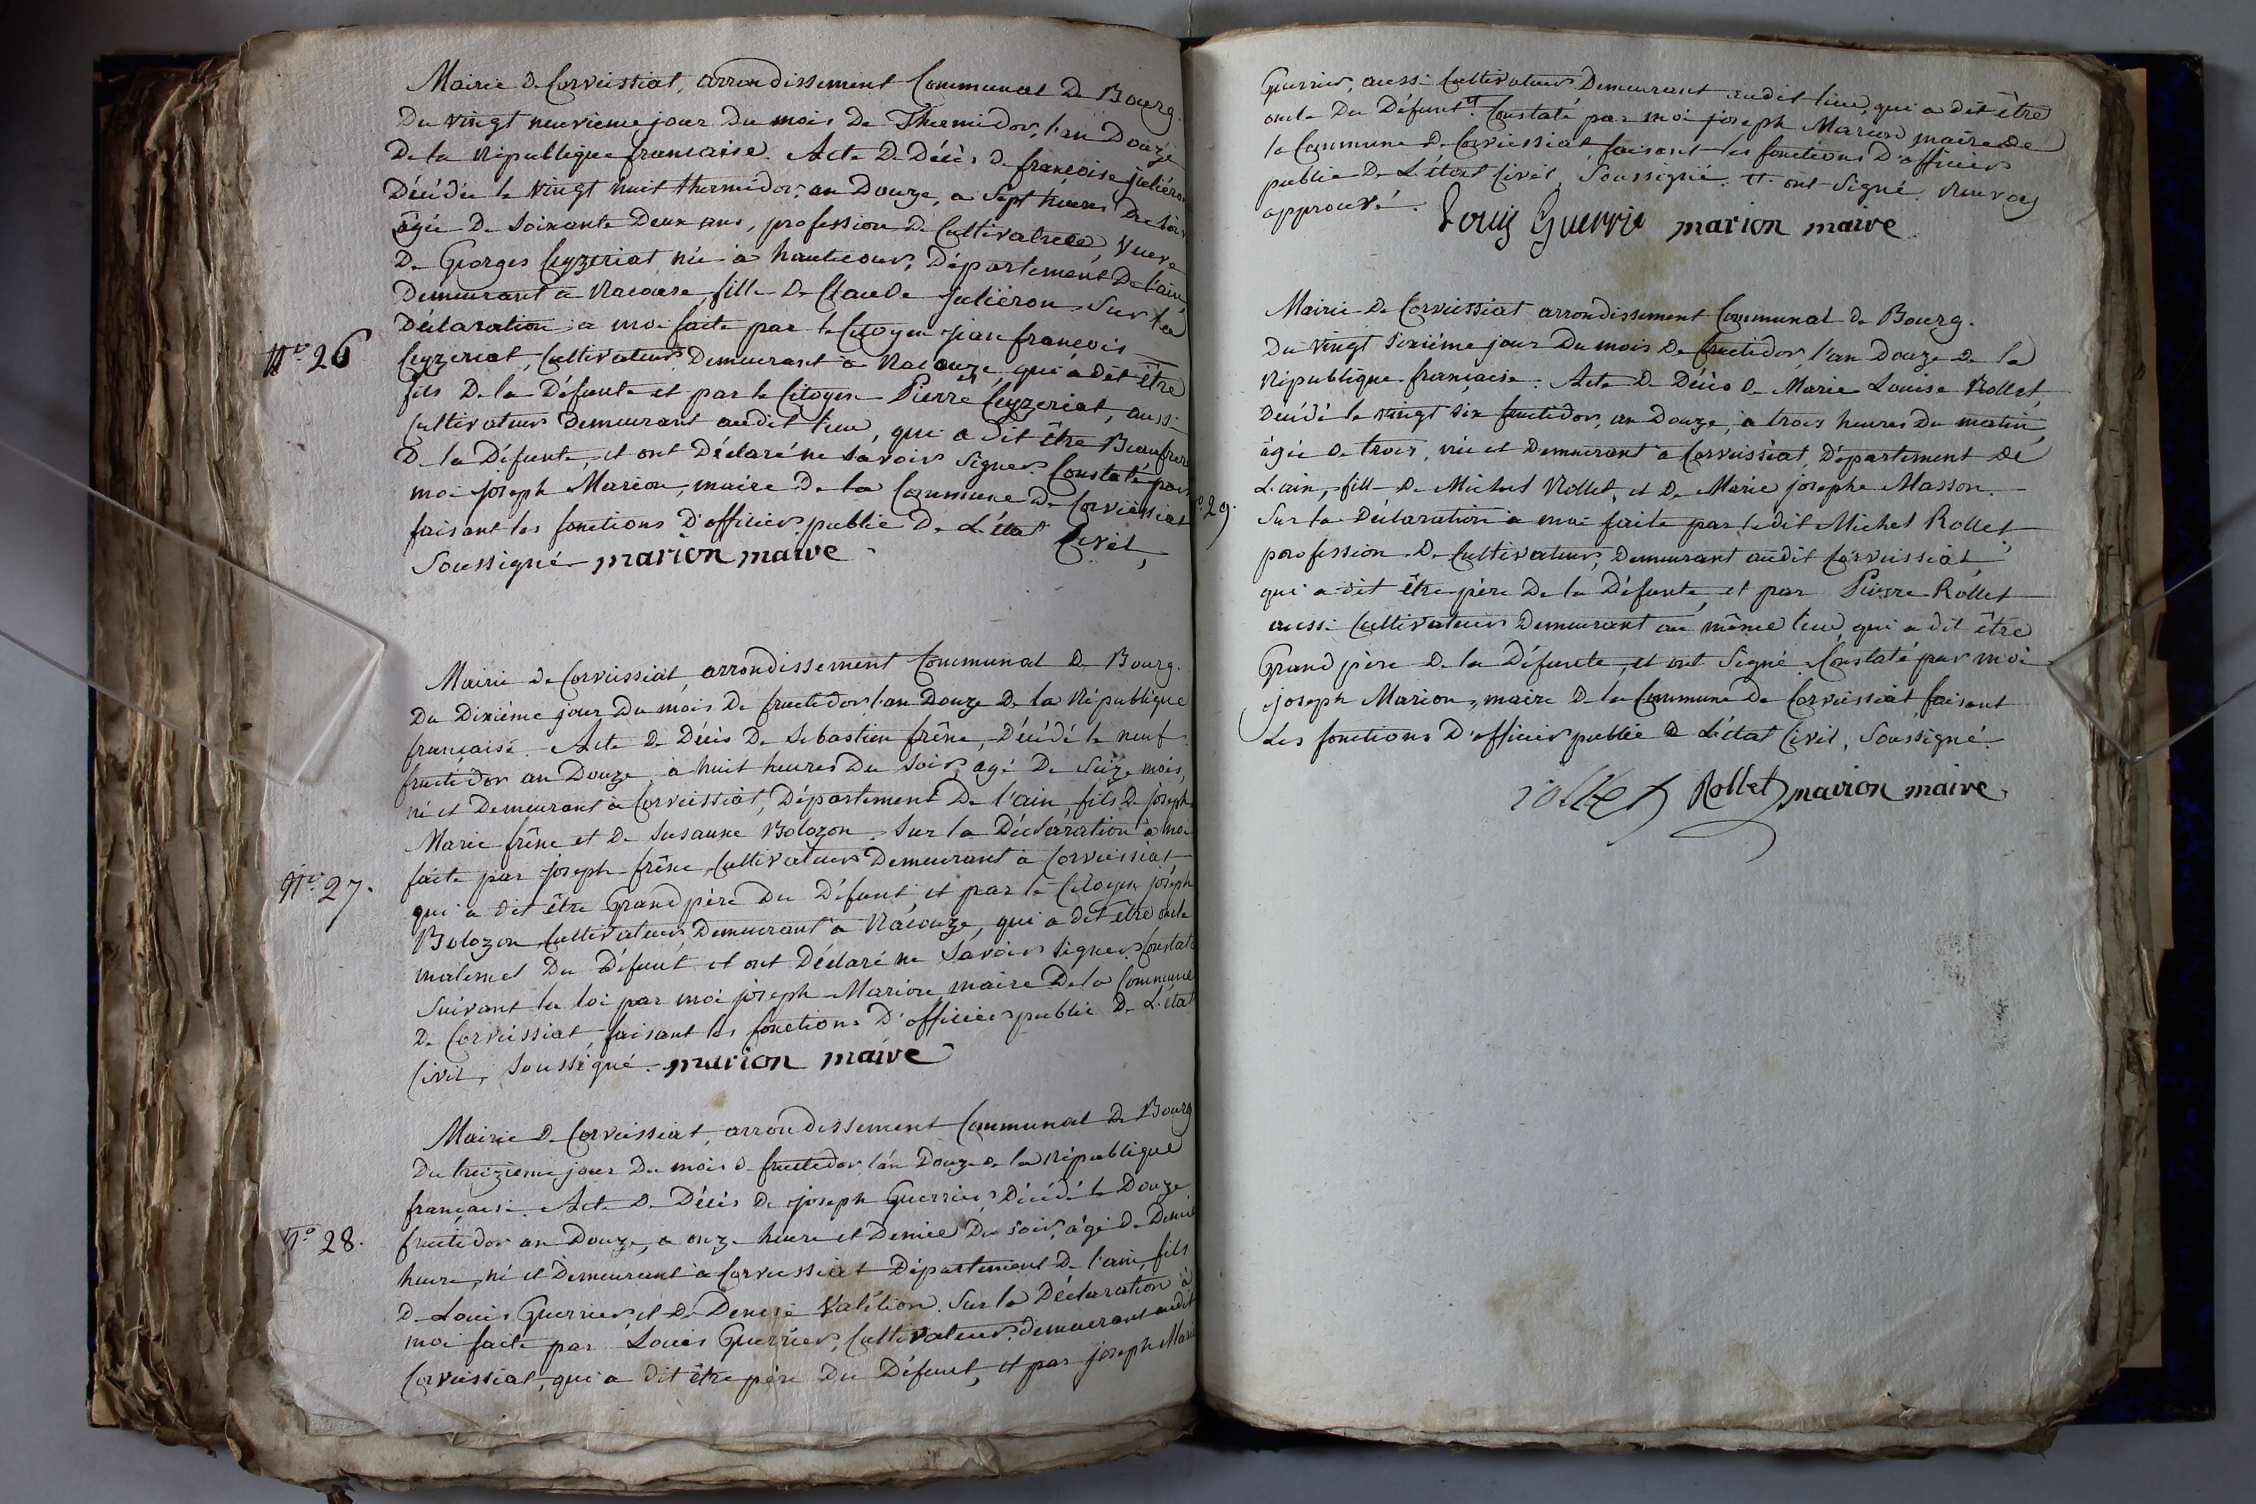 Mairie de Corveissiat, arrondissement Communal de Bourg.
Du vingt neuvieme jour du mois de Thermidor, l'an Douze
De la République francaise. Acte de Décès de francoise Juliéron
Décédée le vingt huit thermidor, an Douze, a Sept heures Du Soir
âgée De Soixante Deux ans, profession de Cultivatrice, Vueve
De Georges Ceyzeriat, née à hautecour, Département De l'ain,
Demeurant a Racouse, fille De Claude Juliéron. Sur la
Déclaration a moi faite par le Citoyen Jean francois
N.o 26
Ceyzeriat, Cultivateur Demeurant à Racouze, qui a dit être
fils De la Défunte et par le Citoyen Pierre Ceyzeriat, aussi
Cultivateur Demeurant audit lieu, qui a dit être Beaufrere
D. la Défunte, et ont Déclaré ne Savoir Signer. Constaté par
moi joseph Marion, maire De la Commune De Corveissiat
faisant les fonctions D'officier public De L'état Civil,
Soussigné marion maire
Mairie de Corveissiat, arrondissement Communal De Bourg.
Du Dixiéme jour Du mois De fructidor l'an Douze De la République
francaise. Acte De Décès De Sebastien frêne, Décédé le neuf
fructidor an Douze, à huit heures Du Soir, agé De Seize mois,
né et Demeurant à Corveissiat, Département De l'ain, fils D. joseph
Marie frêne et De Susanne Bolozon. Sur la Déclaration à moi
N.o 27.
faite par joseph frêne, Cultivateur Demeurant à Corveissiat
qui a dit être Grand père Du Défunt, et par le Citoyen joséph
Bolozon Cultivateur Demeurant à Racouze, qui a dit être oncle
maternel Du Défunt et ont Déclaré ne Savoir Signer. Constaté
Suivant la loi par moi joseph Marion maire De la Commune
De Corveissiat, faisant les fonctions D'officier public De L'état
Civil, Soussigné. marion maire
Mairie De Corveissiat, arrondissement Communal De Bourg
Du treizième jour Du mois De fructidor l'an Douze De la République
francaise. Acte De Décès De joseph Guerrier, Décédé le Douze
N.o 28.
fructidor an Douze, a onze heure et Demie Du soir, âgé De Demie
heure, né et Demeurant à Corveissiat Département De l'ain, fils
D. Louis Guerrier, et De Denise Valétion. Sur la Déclaration à
moi faite par Louis Guerrier, Cultivateur, demeurant audit
Corveissiat, qui a dit être père Du Défunt, et par joseph Marie
Guerrier, aussi Cultivateur Demeurant audit lieu, qui a dit être
oncle Du Défunt. Constaté par moi joseph Marion maire de
la Commune De Corveissiat faisant les fonctions D'officier
public De L'état Civil, Soussigné. et ont Signé
approuvé. Louis Guerrie marion maire
Mairie De Corveissiat arrondissement Communal de Bourg.
Du Vingt Sixiéme jour Du mois De fructidor, l'an Douze De la
République francaise. Acte De Décès De Marie Louise Rollet,
Décédé le vingt Six fructidor, an Douze, à trois heures Du matin,
âgée De trois, née et Demeurant à Corveissiat, Département De
L'ain, fille De Michel Rollet, et De Marie josephe Masson.
o 29.
Sur la Declaration a moi faite par le dit Michel Rollet,
profession De Cultivateur, Demeurant audit Corveissiat,
qui a dit être père De la Défunte, et par Pierre Rollet
aussi Cultivateur Demeurant au même lieu, qui a dit être
Grand père De la Défunte, et ont Signé. Constaté par moi
joseph Marion, maire De la Commune De Corveissiat, faisant
Les fonctions D'officier public De L'état Civil, Soussigné.
rollet Rollet marion maire